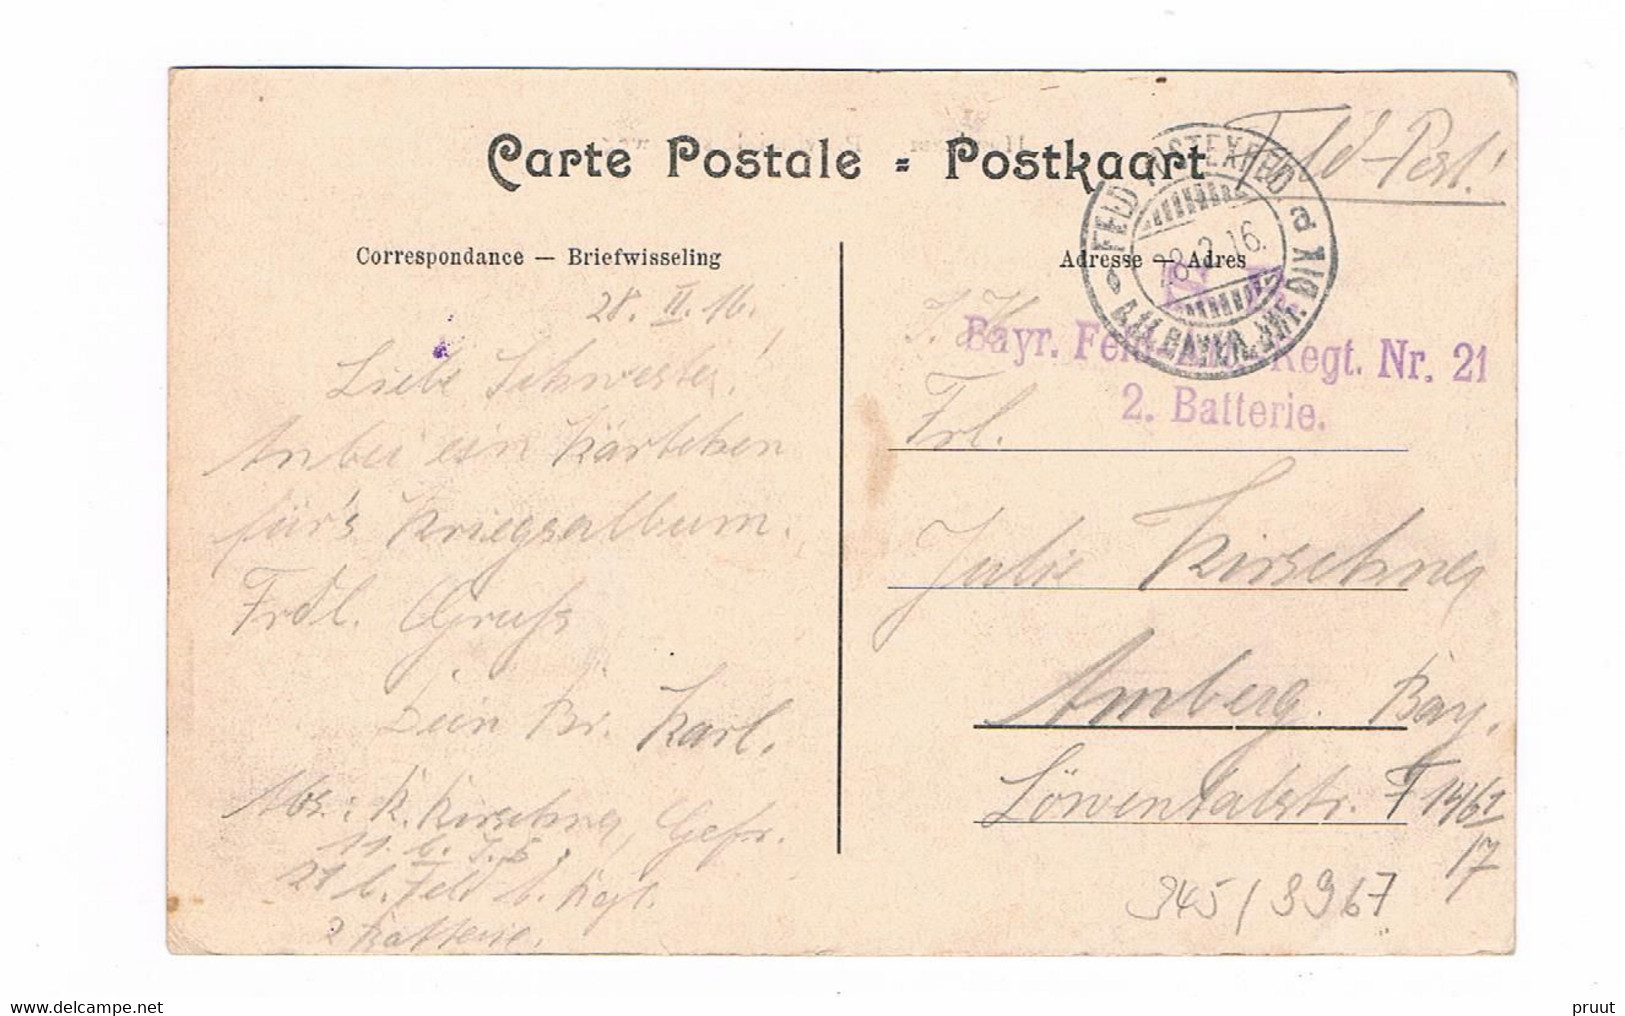 Carte Postale = Postkaart
Feld-Post!
Correspondance — Briefwisseling
28. II. 16.
Liebe Schwester!
Anbei ein Kärtchen
für's Kriegsalbum.
Frdl. Gruß
Dein Br. Karl.
Abs.: K. Kirschner, Gefr.
11. b. I. D.
21 b. Feld Regt.
2 Batterie.
Adresse — Adres
FELD POSTEXPED
a
28.2.16.
Bayr. Feld-Art.-Regt. Nr. 21
2. Batterie.
Frl.
Julie Kirschner
Amberg. Bay.
Löwentalstr.
17
345/3967
delcampe.net
pruut